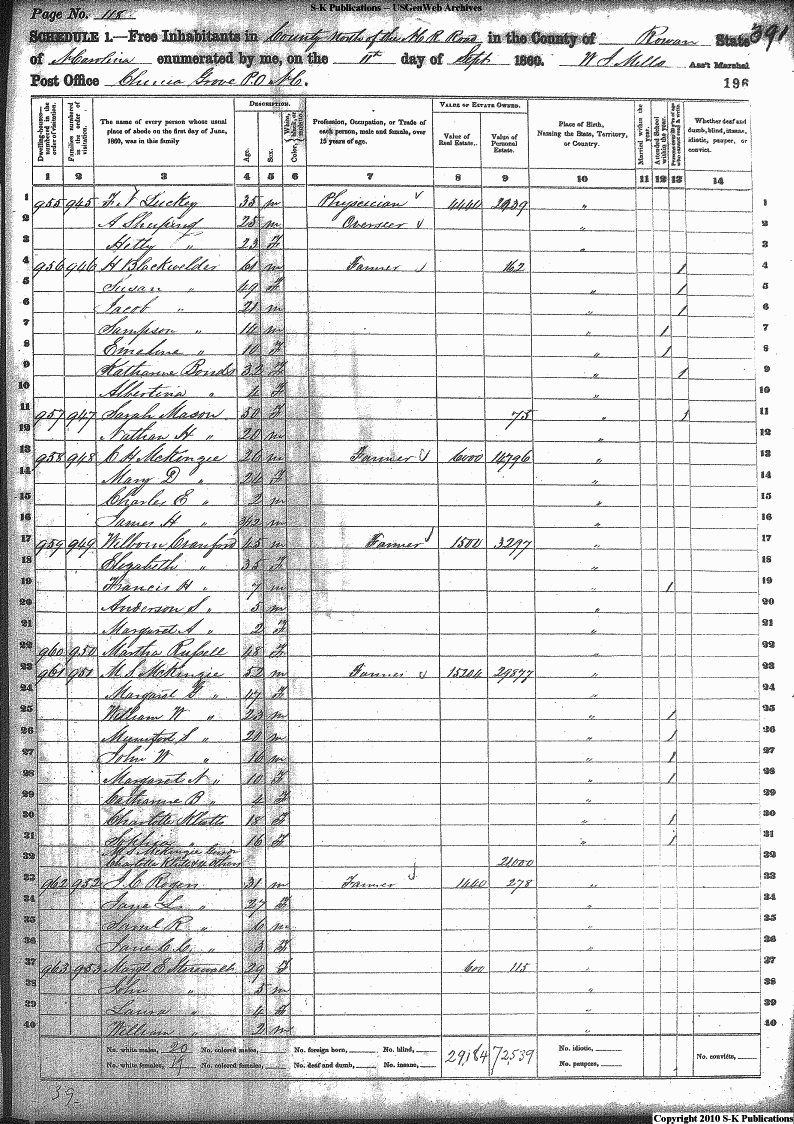 S-K Publications – USGenWeb Archives
Page No. 118
SCHEDULE 1.—Free Inhabitants in County North of the N. R. Road in the County of Rowan State 391
of N Carolina enumerated by me, on the 11th day of Sept 1860. W S Mills Ass't Marshal
Post Office China Grove P.O N.C. 196
DESCRIPTION. VALUE OF ESTATE OWNED.
Dwelling-houses—numbered in the order of visitation. Families numbered in the order of visitation. The name of every person whose usual place of abode on the first day of June, 1860, was in this family Age. Sex. Color, White, black, or mulatto. Profession, Occupation, or Trade of each person, male and female, over 15 years of age. Value of Real Estate. Value of Personal Estate. Place of Birth, Naming the State, Territory, or Country. Married within the year. Attended School within the year. Whether deaf and dumb, blind, insane, idiotic, pauper, or convict.
1 2 3 4 5 6 7 8 9 10 11 12 13 14
1 955 945 35 m Physician 4440 " 1
2 25 m Overseer " 2
3 Hetty " 23 F " 3
4 956 946 H Blackwelder 61 m Farmer 162 1 4
5 Susan " 49 F " 1 5
6 Jacob " 21 m " 1 6
7 Sampson " 14 m " 1 7
8 Emeline " 10 F " 1 8
9 Katharine Bonds 32 F " 1 9
10 Albertina " 4 F " 10
11 957 947 Sarah Mason 50 F 75 " 1 11
12 Nathan H " 20 m " 12
13 958 948 C H McKenzie 26 m Farmer 6000 14796 " 13
14 Mary D " 24 F " 14
15 Charles E " 2 m " 15
16 James H " 3/12 m " 16
17 959 949 Wilborn Cranford 45 m Farmer 1500 3297 " 17
18 Elizabeth " 35 F " 18
19 Francis H " 7 m " 1 19
20 Anderson S " 5 m " 20
21 Margaret A " 2 F " 21
22 960 950 Martha Russell 48 F " 22
23 961 951 M. S. McKenzie 52 m Farmer 15204 29877 " 23
24 Margaret " 47 F " 24
25 William W " 23 m " 1 25
26 Mumford S " 20 m " 1 26
27 John W " 16 m " 1 27
28 Margaret N " 10 F " 1 28
29 Catharine B " 4 F " 29
30 Charlotte 18 F " 1 30
31 Sophia " 16 F " 1 31
32 M. S. McKenzie
Charlotte 21000
33 962 952 J. C. Rogers 31 m Farmer 1440 278 " 33
34 Jane L. " 27 F " 34
35 Saml R " 6 m " 35
36 Jane C. C. " 3 F " 36
37 963 953 Margt E 29 F 600 115 " 37
38 John " 5 m " 38
39 Laura " 4 F " 39
40 William " 2 m " 40
No. white males, 20 No. colored males, No. foreign born, No. blind, 29184 72539 No. idiotic,
No. white females, 19 No. colored females, No. deaf and dumb, No. insane, No. paupers, No. convicts,
39
Copyright 2010 S-K Publications